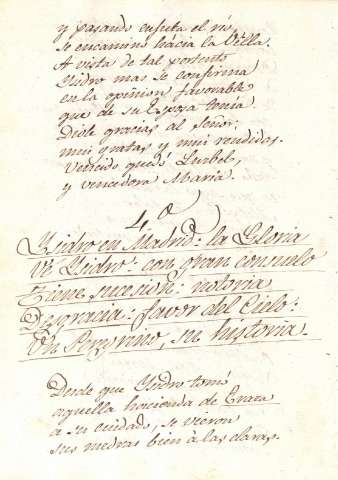 y pasando enjuta el río
se encaminó hácia la Villa.
A vista de tal portento
Ysidro mas se confirma
en la opinion favorable
que de su Esposa tenía.
Dióle gracias al Señor:
mui gratas y mui rendidas.
Vencido quedó Luzbel,
y vencedora Maria.
4º
Ysidro en Madrid: la Gloria
Vé Ysidro: con gran consuelo
Tiene sucesión: notoria
Desgracia: favor del Cielo:
Un Peregrino, su historia.
Desde que Ysidro tomó
aquella hacienda de
a su cuidado, se vieron
sus medras bien à las claras.